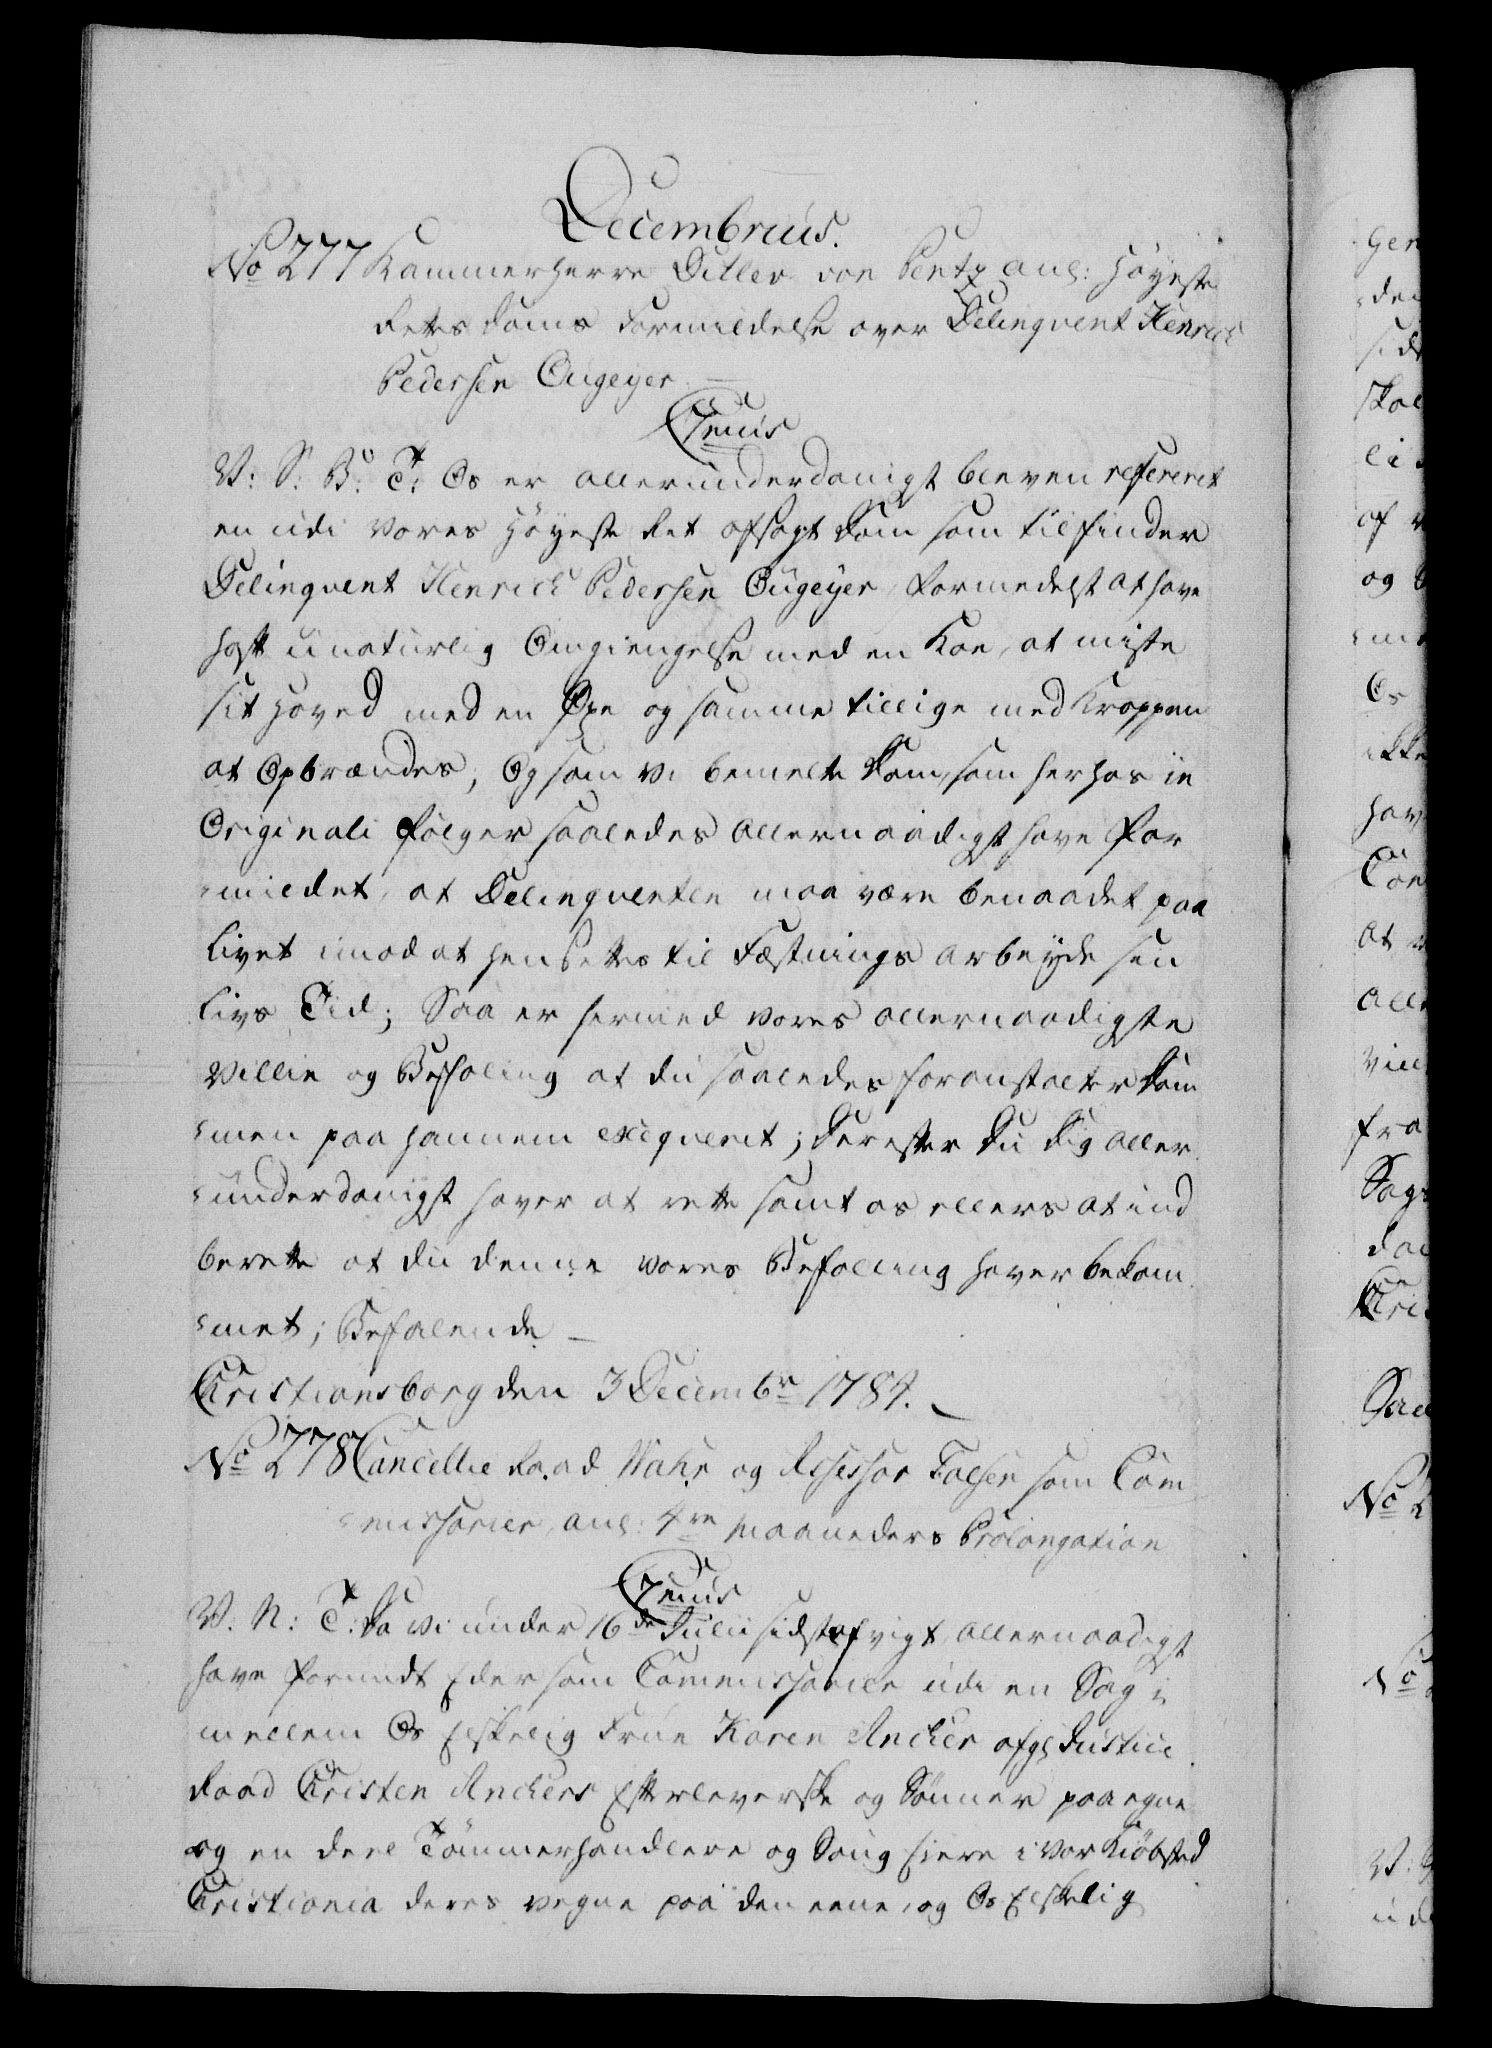 Decembrius.
No 277 Kammerherre Ditlev von Pentz ang: Høyeste
Rettes Doms Formildelse over Delinqvent Henrich
Pedersen Ougeyer
Genus
V: S: B: T: Os er allerunderdanigst bleven refereret
en udi vores Høyeste Ret afsagt Dom som tilfinder
Delinqvent Henrich Pedersen Ougeyer, formedelst at have
haft unaturlig Omgiengelse med en Koe, at miste
sit Hoved med en Øxe og samme tillige med Kroppen
at Opbrændes, Og som vi bemelte Dom, som herhos in
Originali følger saaledes allernaadigst have for
=mildet, at Delinqventen maa være benaadet paa
Livet imod at hensettes til Fæstnings Arbeyde sin
Livs Tid; Saa er hermed vores allernaadigste
Villie og Befaling at du saaledes foranstalter Dom
=men paa hannem exeqveret; Derefter du dig aller
=underdanigst haver at rette samt os ellers at ind
berette at du denne vores Befalling haver bekom
=met; Befalende
Christiansborg den 3 Decembr 1784.
No 278 Cancellie Raad Wahr og Assessor Falsen som Com
=missarier, ang: 4re Maaneders Prolongation
Genus
V. N: T: Da vi under 16de Julii sidstafvigt, allernaadigst
have forundt Eder som Commissarier udi en Sag i
mellem Os Elskelig Frue Karen Ancher afgl Justice
Raad Christen Anchers Efterleverske og Sønner paa egne
og en deel Tømmerhandlere og Saug Eiere i vor Kiøbsted
Christiania deres vegne paa den eene, og Os Elskelig